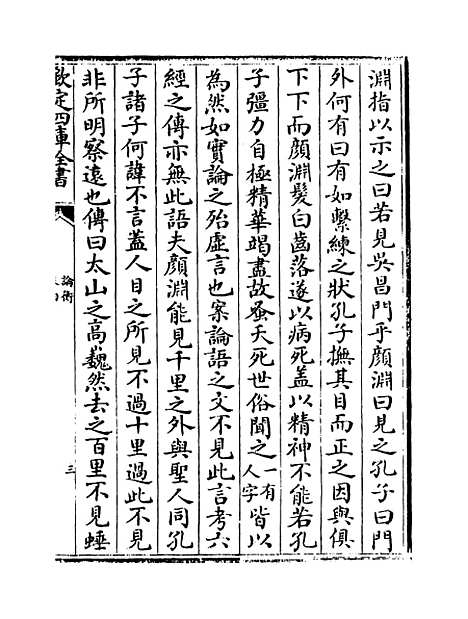 淵指以示之曰若見吳昌門乎顔淵曰見之孔子曰門
外何有曰有如繫練之狀孔子撫其目而正之因與俱
下下而顔淵髮白齒落遂以病死盖以精神不能若孔
子彊力自極精華竭盡故蚤夭死世俗聞之一有人字皆以
為然如實論之殆虛言也案論語之文不見此言考六
經之傳亦無此語夫顔淵能見千里之外與聖人同孔
子諸子何諱不言盖人目之所見不過十里過此不見
非所明察遠也傳曰太山之高巍然去之百里不見埵
欽定四庫全書
論衡
三